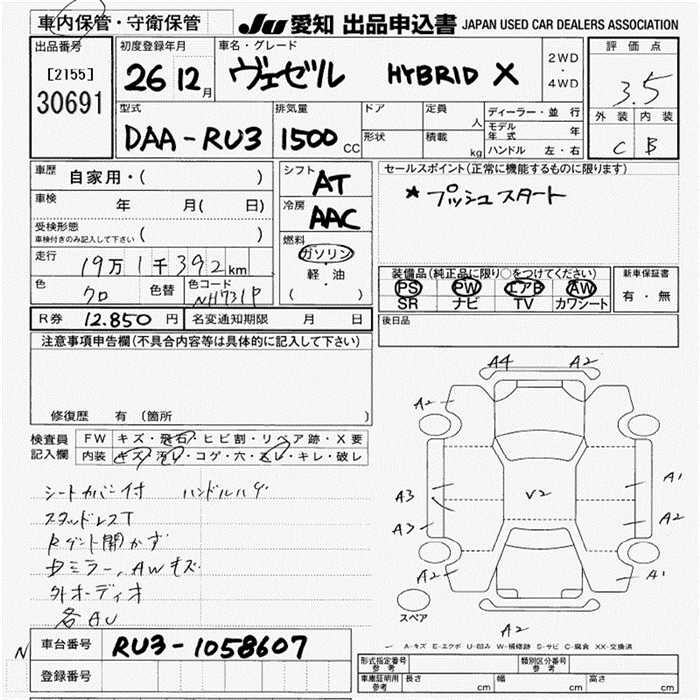 車内保管・守衛保管 JU 愛知 出品申込書 JAPAN USED CAR DEALERS ASSOCIATION
出品番号 [2155] 30691
初度登録年月 26 12月
車名・グレード ヴェゼル HYBRID X
2WD・4WD
評価点 3.5
外装 C 内装 B
型式 DAA-RU3
排気量 1500 CC
ドア 形状
定員 人 積載 kg
ディーラー・並行
モデル年式 年
ハンドル 左・右
車歴 自家用・( )
車検 年 月( 日)
受検形態 車検付きのみ記入して下さい ( )
走行 19万1千392km
色 クロ 色替 色コード NH731P
シフト AT
冷房 AAC
燃料 ガソリン・軽・油 ( )
セールスポイント(正常に機能するものに限ります)
★プッシュスタート
装備品(純正品に限り○をつけてください)
PS PW エアB AW
SR ナビ TV カワシート
新車保証書 有・無
R券 12.850円 名変通知期限 月 日
後日品
注意事項申告欄(不具合内容等は具体的に記入して下さい)
修復歴 有(箇所
検査員記入欄 FW キズ・飛石・ヒビ割・リペア跡・X要
内装 キズ・汚レ・コゲ・穴・スレ・キレ・破レ
シートカバー付 ハンドルハゲ
スタッドレスT
Rゲート開かず
ミラー、AWキズ
外オーディオ
各AU
A4 A2
A2
A3
A2
A2
V2
A1
A2
A1
A2
スペア
A-キズ E-エクボ U-凹み W-補修跡 S-サビ C-腐食 XX-交換済
N
車台番号 RU3-1058607
登録番号
形式指定番号 参考 類別区分番号 参考
車庫証明用 参考 長さ cm 幅 cm 高さ cm